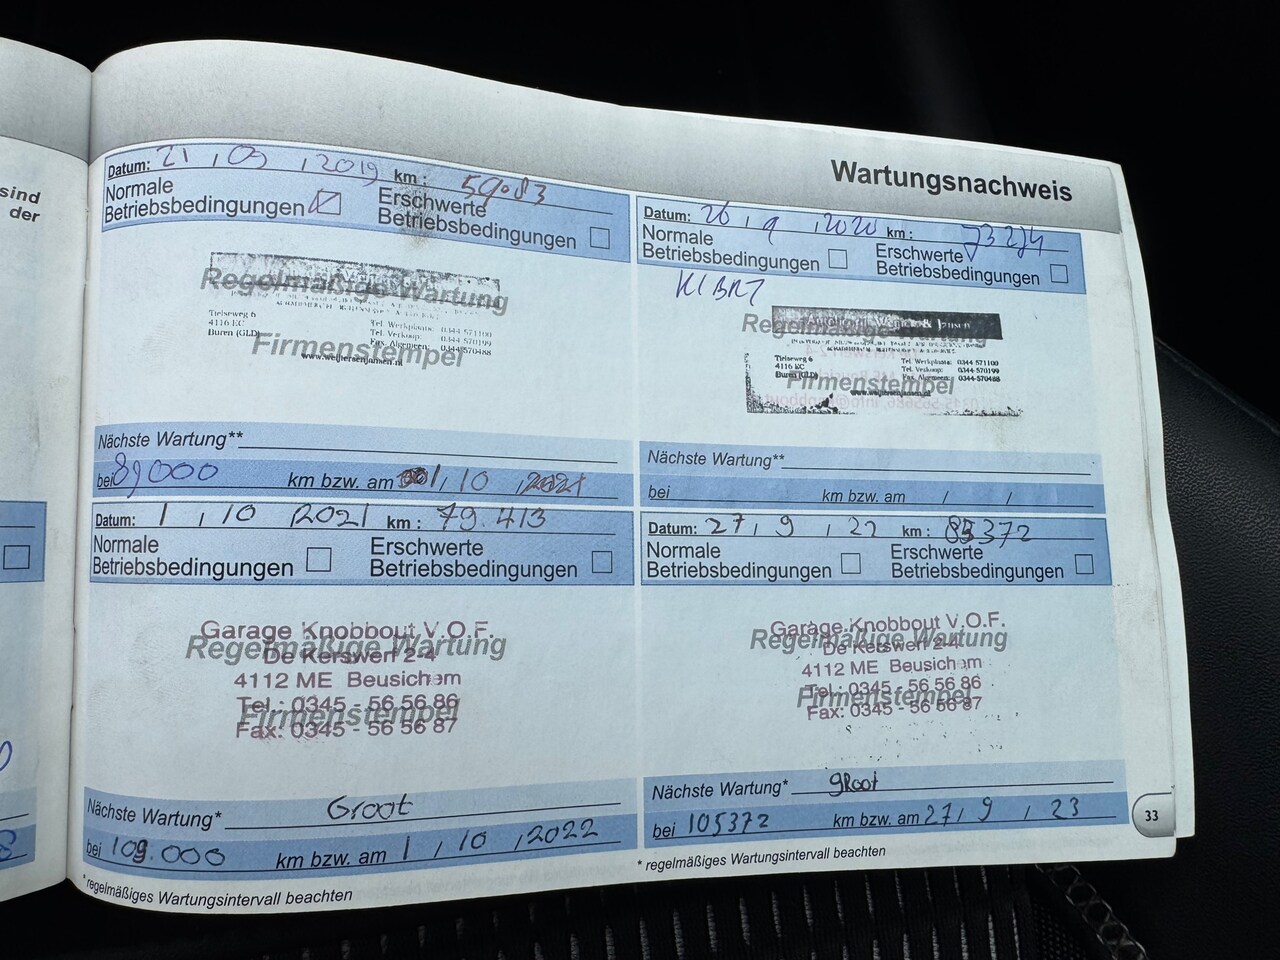 sind
der
Wartungsnachweis
Datum: 21 , 09 , 2019 km : 59.083
Normale
Betriebsbedingungen
Erschwerte
Betriebsbedingungen
Regelmäßige Wartung
Tielseweg 6
4116 EC
Buren (GLD)
Tel. Werkplaats: 0344 571100
Tel. Verkoop: 0344 570199
Fax. Algemeen: 0344 570488
Firmenstempel
Nächste Wartung**
bei 89000 km bzw. am 1 , 10 , 2021
Datum: 26 , 9 , 2020 km : 73274
Normale
Betriebsbedingungen
Erschwerte
Betriebsbedingungen
Regelmäßige Wartung
& Jansen
Tielseweg 6
4116 EC
Buren (GLD)
Tel. Werkplaats: 0344 571100
Tel. Verkoop: 0344 570199
Fax. Algemeen: 0344 570488
Firmenstempel
Nächste Wartung**
bei km bzw. am / /
Datum: 1 , 10 2021 km : 79.413
Normale
Betriebsbedingungen
Erschwerte
Betriebsbedingungen
Garage Knobbout V.O.F.
Regelmäßige Wartung
De Kerswerf 2-4
4112 ME Beusichem
Tel.: 0345 - 56 56 86
Firmenstempel
Fax: 0345 - 56 56 87
Nächste Wartung* Groot
bei 109.000 km bzw. am 1 , 10 , 2022
* regelmäßiges Wartungsintervall beachten
Datum: 27 , 9 , 22 km : 85372
Normale
Betriebsbedingungen
Erschwerte
Betriebsbedingungen
Garage Knobbout V.O.F.
Regelmäßige Wartung
De Kerswerf 2-4
4112 ME Beusichem
Tel.: 0345 - 56 56 86
Firmenstempel
Fax: 0345 - 56 56 87
Nächste Wartung* groot
bei 105372 km bzw. am 27 , 9 , 23
* regelmäßiges Wartungsintervall beachten
33